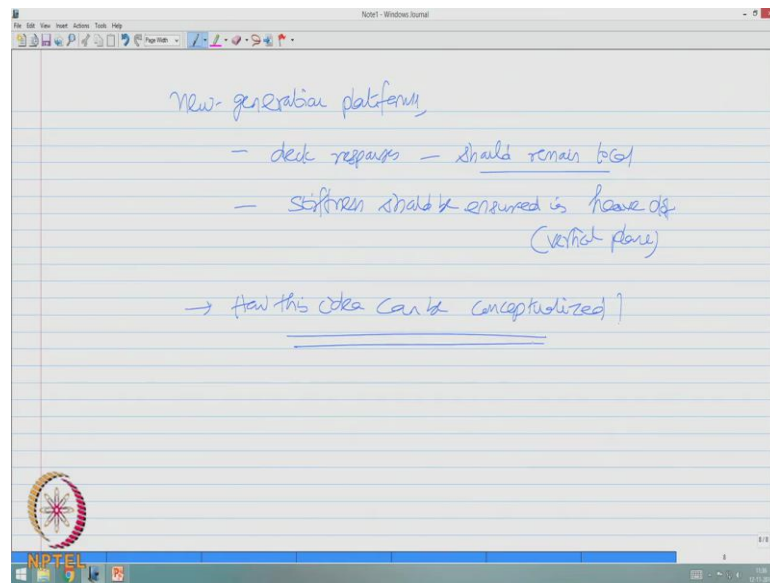 Note1 - Windows Journal
File Edit View Insert Actions Tools Help
Page Width
New-generation platforms,
- deck responses - should remain
- stiffness should be ensured in heave dof
(vertical plane)
→ How this idea can be conceptualized?
8/8
8
NPTEL